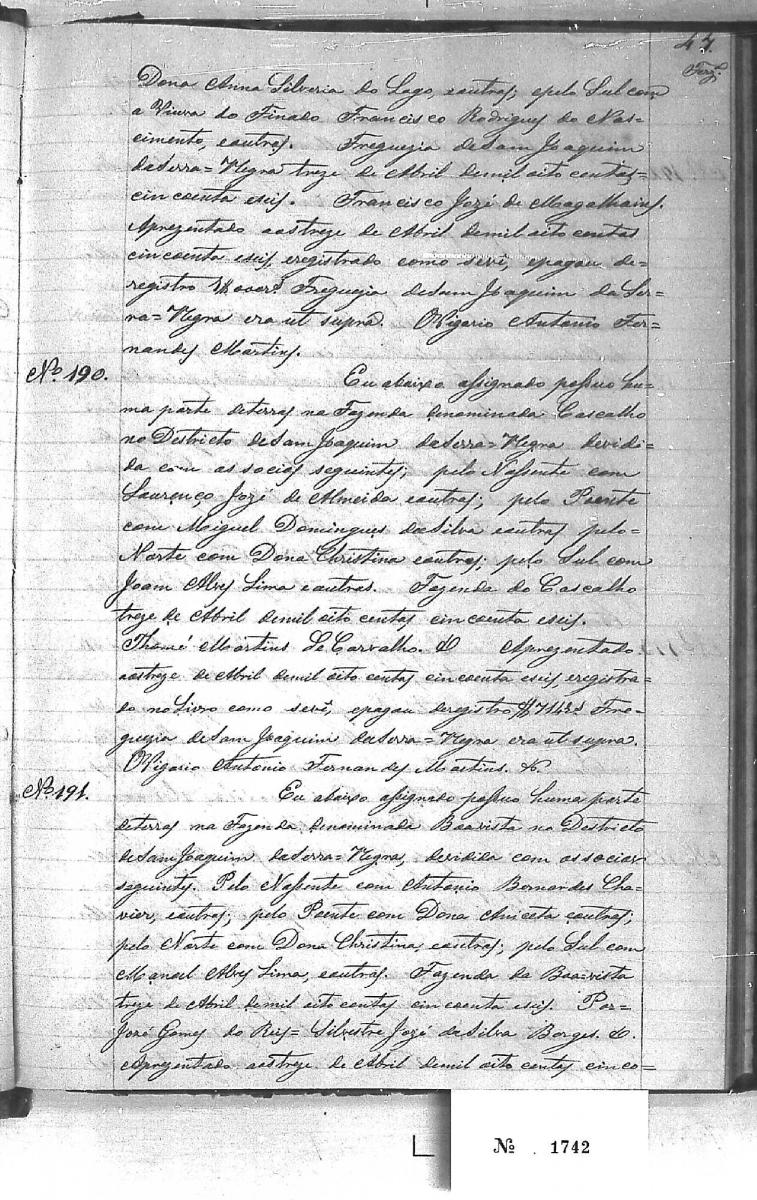 47.
Dona Anna Silveria do Lago, eoutros, epelo Sul com
a Viuva do Finado Francisco Rodrigues do Nas=
cimento, eoutros. Freguezia deSam Joaquim
daSerra=Negra treze de Abril demil oito centos=
cincoenta eseis. Francisco Jozé de Magalhains.
Aprezentado aostreze de Abril demil oito centos
cincoenta eseis, eregistrado como sevê, epagou de=
registro Freguezia deSam Joaquim da Ser=
ra=Negra era ut supra. OVigario Antonio Fer=
nandes Martins.
No. 190.
Eu abaixo assignado possuo hu=
ma parte deterras na Fazenda denominada Cascalho
no Destricto deSam Joaquim daSerra=Negra devidi=
da com os socios seguintes; pelo Nassente com
Lourenço Jozé de Almeida eoutros; pelo Poente
com Miguel Domingues daSilva eoutros pelo=
Norte com Dona Christina eoutros; pelo Sul com
Joam Alves Lima eoutros. Fazenda do Cascalho
treze de Abril demil oito centos cincoenta eseis.
Thomé Martins deCarvalho. &. Aprezentado
aostreze de Abril demil oito centos cincoenta eseis, eregistra=
do no Livro como sevê, epagou deregistro Fre=
guezia deSam Joaquim daSerra=Negra era ut supra.
OVigario Antonio Fernandes Martins. &.
No. 191.
Eu abaixo assignado possuo huma parte
deterras na Fazenda denominada Boavista no Destricto
deSam Joaquim daSerra=Negra, devidida com os socios
seguintes. Pelo Nassente com Antonio Bernardes Cha=
vier, eoutros; pelo Poente com Dona Aniceta eoutros;
pelo Norte com Dona Christina, eoutros; pelo Sul com
Manoel Alves Lima, eoutros. Fazenda da Boavista
treze de Abril demil oito centos cincoenta eseis. Por=
Jozé Gomes do Reis= Silvestre Jozé daSilva Borges. &.
Aprezentado aostreze de Abril demil oito centos cinco=
№ 1742